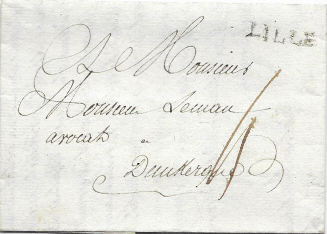 LILLE
A Monsieur
Monsieur Leman
avocat
a
Dunkerque